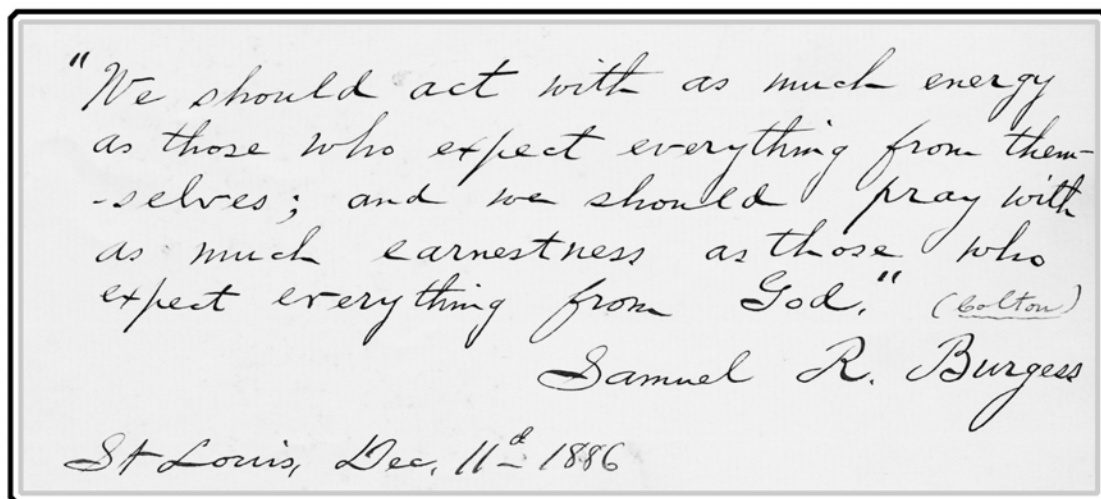 "We should act with as much energy
as those who expect everything from them-
-selves; and we should pray with
as much earnestness as those who
expect everything from God." (Colton)
Samuel R. Burgess
St Louis, Dec. 11d 1886